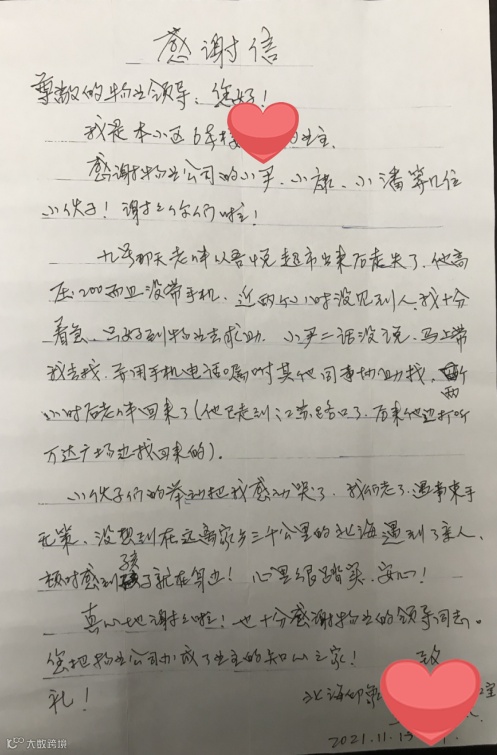 感谢信
尊敬的物业领导、您好!
我是本小区6号楼 的业主.
感谢物业公司的小尹、小康、小潘等几位
小伙子!谢谢你们啦!
九号那天老伴从吾悦超市出来后走失了.他高
压200而且没带手机.近两个小时没见到人,我十分
着急.只好到物业去求助.小尹二话没说.马上带
我去找.并用手机电话嘱咐其他同事协助找,两
小时后老伴回来了(他已走到 路口了.后来他边打听
万达广场边找回来的).
小伙子们的举动把我感动哭了.我们老了.遇事束手
无策、没想到在远离家乡三千公里的北海遇到了亲人、
顿时感到孩子就在身边!心里很踏实、安心!
真心地谢谢啦!也十分感谢物业的领导同志。
您把物业公司办成了业主的知心之家! 致
礼!
北海印象 业主
2021.11.13
大数跨境